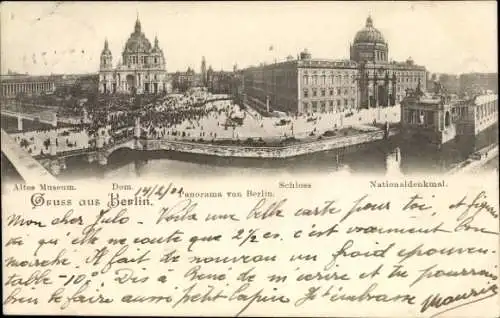 Altes Museum. Dom. Panorama von Berlin. Schloss Nationaldenkmal.
Gruss aus Berlin. 14/2/00
Mon cher Julo. Voilà une belle carte pour toi, et
qui elle ne coute que 2½ c. c'est vraiment bon
marché. Ils font de nouveau un froid épouven-
table -10°. Dis à René de m'écrire et tu pourrais
bien le faire aussi petit lapin Je t'embrasse Maurice